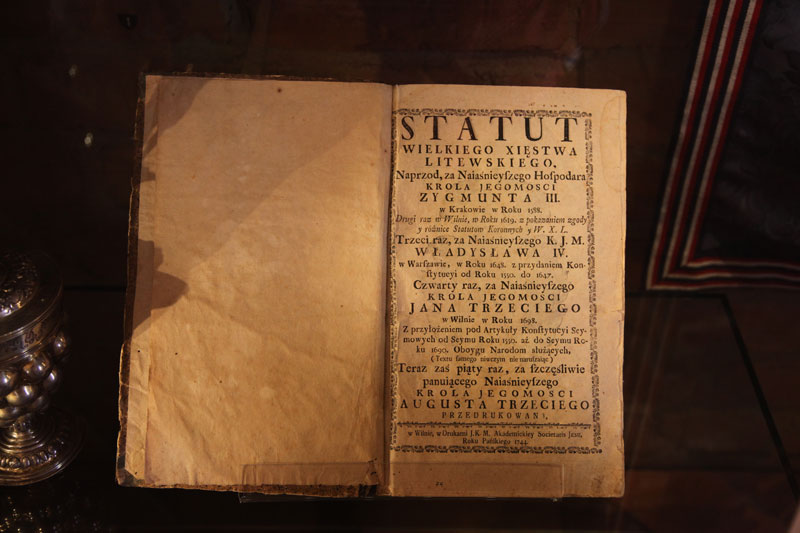 STATUT
WIELKIEGO XIĘSTWA
LITEWSKIEGO,
Naprzod, za Naiaśnieyſzego Hoſpodara
KROLA JEGOMOSCI
ZYGMUNTA III.
w Krakowie w Roku 1588.
Drugi raz w Wilnie, w Roku 1619. z pokazaniem zgody
y rożnice Statutow Koronnych y W. X. L.
Trzeci raz, za Naiaśnieyſzego K. J. M.
WŁADYSŁAWA IV.
w Warſzawie, w Roku 1648. z przydaniem Kon-
ſtytucyi od Roku 1550. do 1647.
Czwarty raz, za Naiaśnieyſzego
KROLA JEGOMOSCI
JANA TRZECIEGO
w Wilnie w Roku 1698.
Z przyłożeniem pod Artykuły Konſtytucyi Sey-
mowych od Seymu Roku 1550. aż do Seymu Ro-
ku 1690. Oboygu Narodom ſłużących,
(Textu ſamego niwczym nie naruſzaiąc)
Teraz zaś piąty raz, za ſzczęśliwie
panuiącego Naiaśnieyſzego
KROLA JEGOMOSCI
AUGUSTA TRZECIEGO
PRZEDRUKOWANY,
w Wilnie, w Drukarni J. K. M. Akademickiey Societatis Jesu,
Roku Pańſkiego 1744.